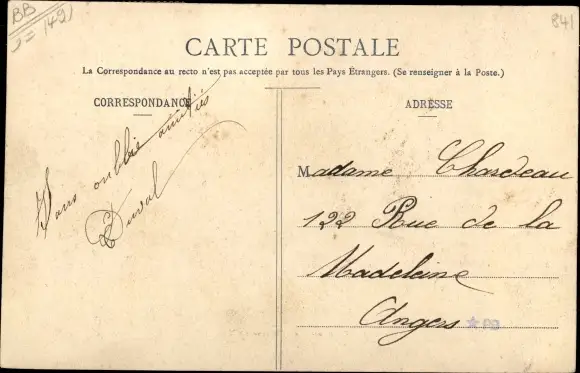 BB
841
CARTE POSTALE
La Correspondance au recto n'est pas acceptée par tous les Pays Étrangers. (Se renseigner à la Poste.)
CORRESPONDANCE
Sans oublie amitiés
Duval
ADRESSE
Madame Chardeau
122 Rue de la
Madeleine
Angers